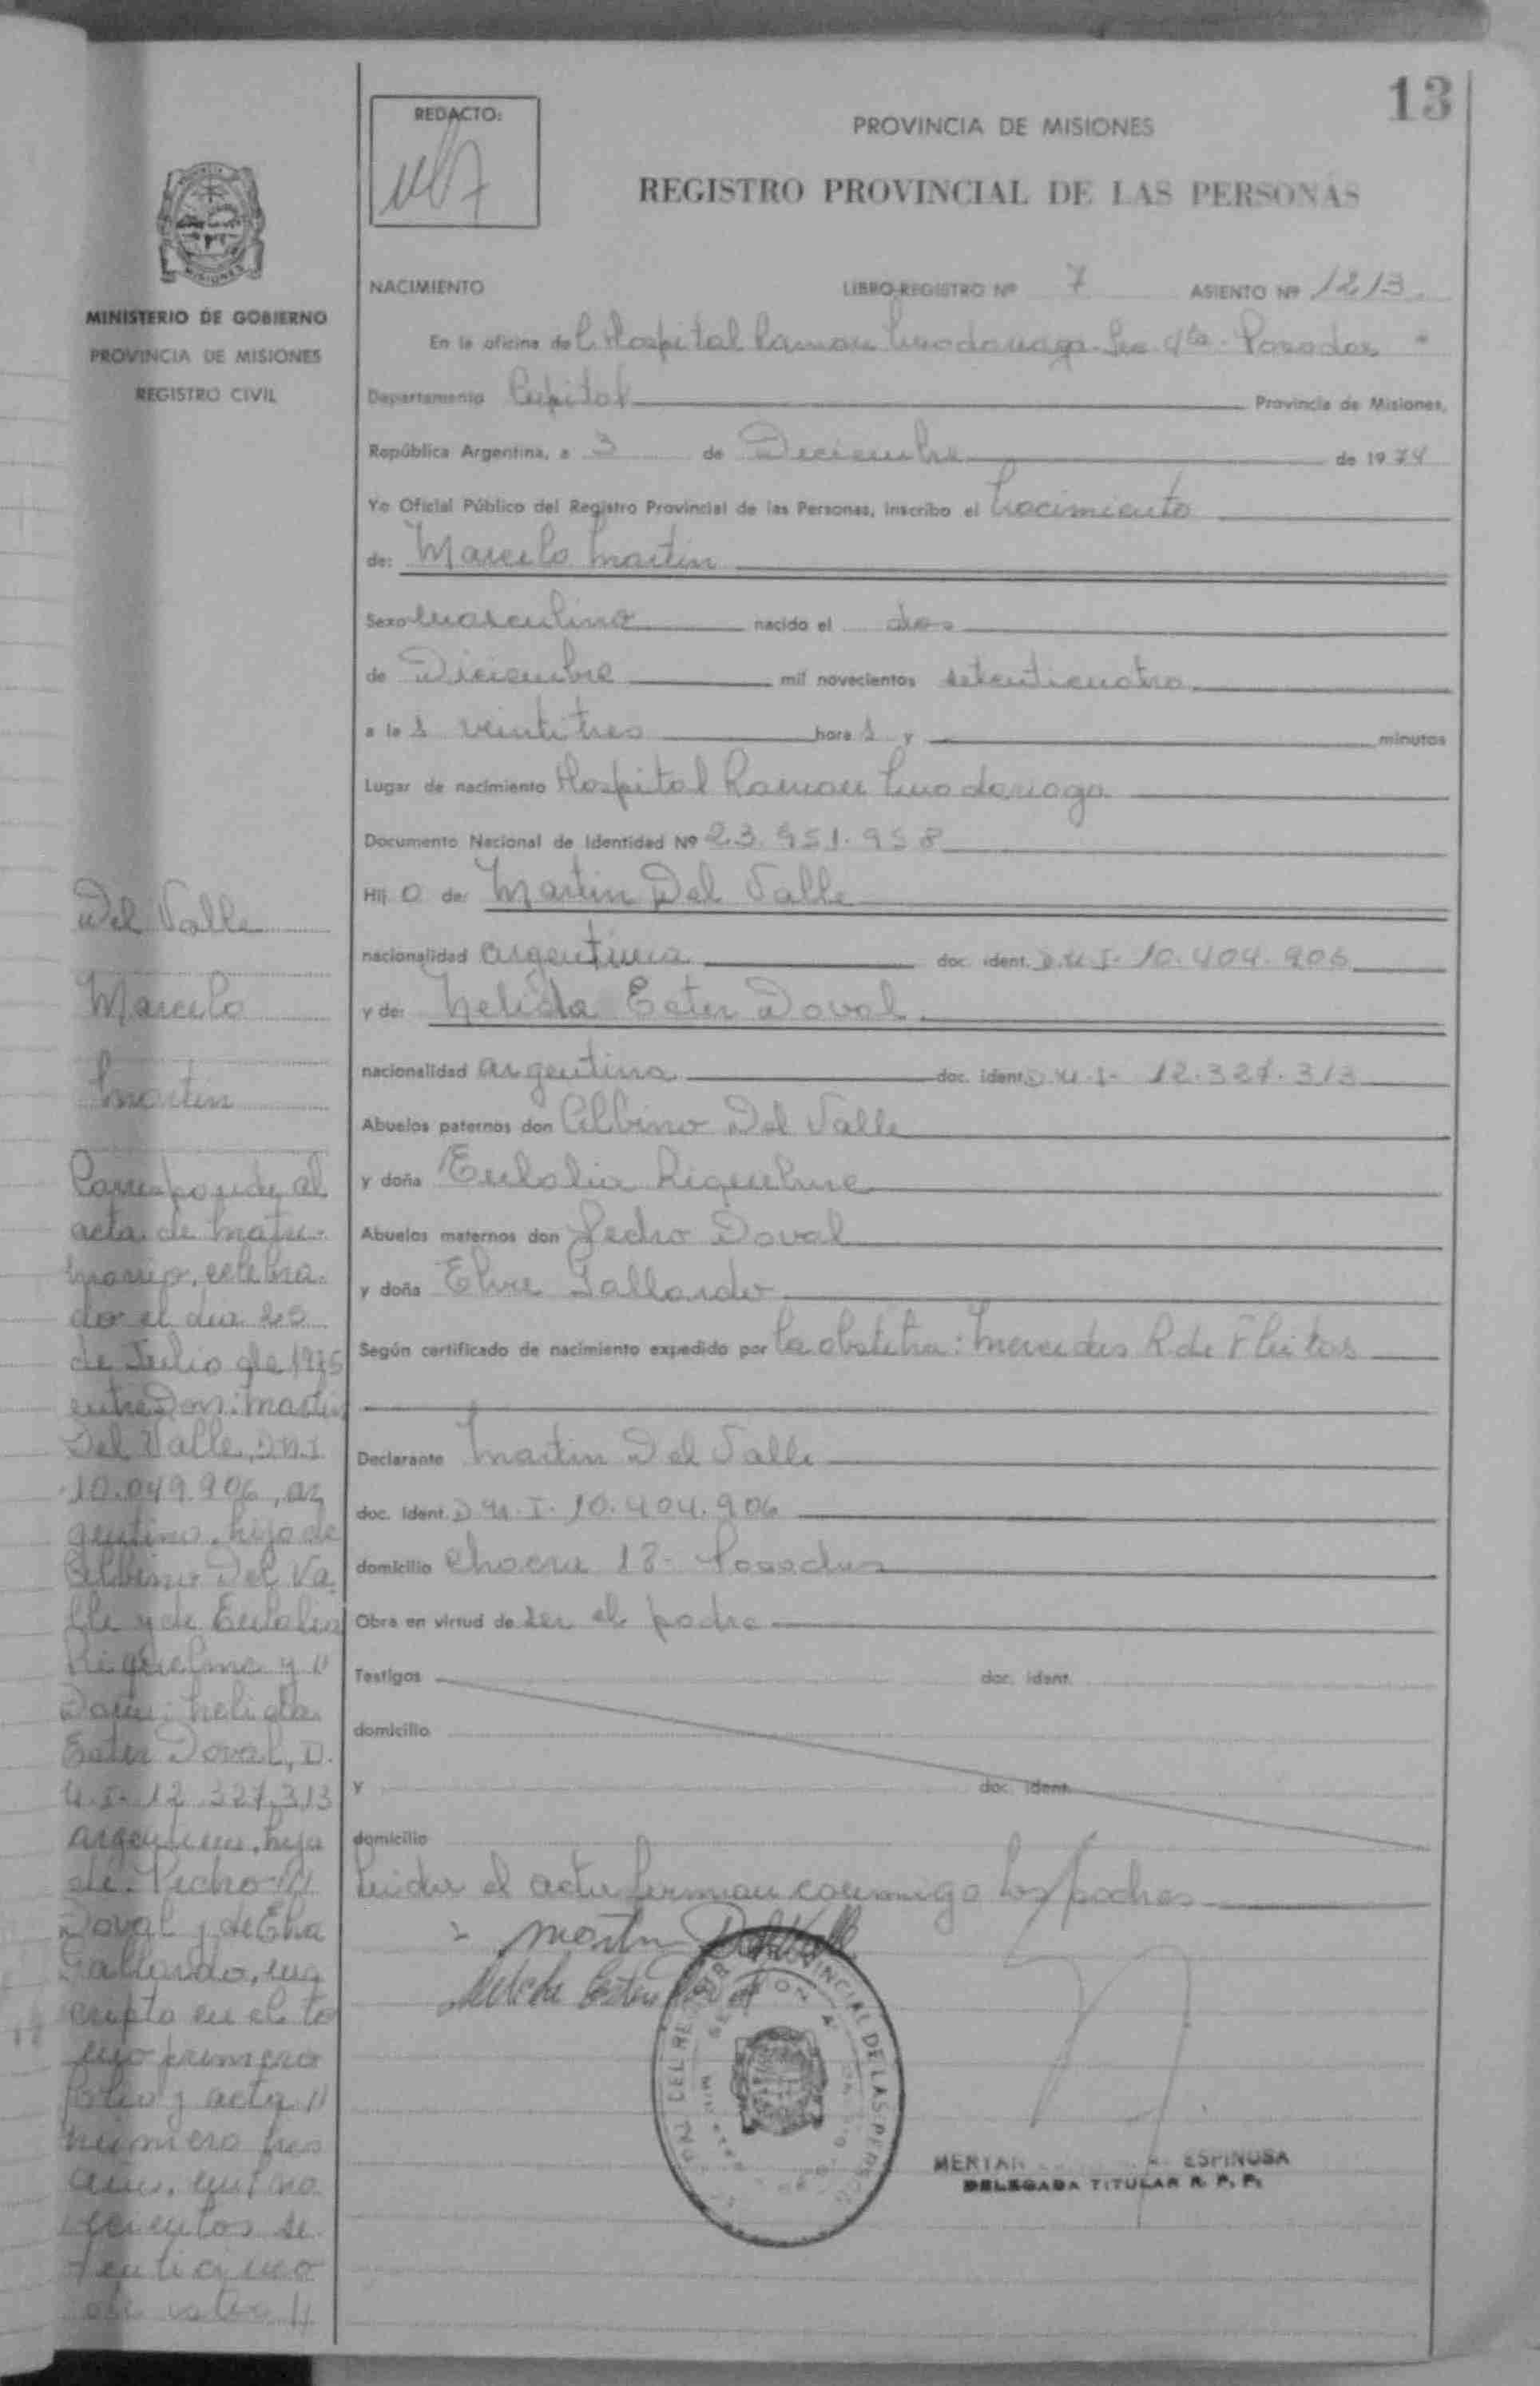 13
REDACTO:
PROVINCIA DE MISIONES
REGISTRO PROVINCIAL DE LAS PERSONAS
MISIONES
MINISTERIO DE GOBIERNO
PROVINCIA DE MISIONES
REGISTRO CIVIL
NACIMIENTO LIBRO-REGISTRO Nº 7 ASIENTO Nº 1213
En la oficina del Hospital Ramon Posadas
Departamento Capital Provincia de Misiones,
República Argentina, a 3 de Diciembre de 1974
Yo Oficial Público del Registro Provincial de las Personas, inscribo el Nacimiento
de: Marcelo Martin
Sexo Masculino nacido el dos
de Diciembre mil novecientos setenticuatro
a las veintitres horas y minutos
Lugar de nacimiento Hospital Ramon
Documento Nacional de Identidad Nº 23.951.958
Hijo de: Martin Del Valle
nacionalidad argentina doc. ident. D.N.I. 10.404.906
y de: Nelida Ester Doval
nacionalidad argentina doc. ident. D.N.I. 12.327.313
Abuelos paternos don Albino Del Valle
y doña Eulalia Riquelme
Abuelos maternos don Pedro Doval
y doña Elva Gallardo
Según certificado de nacimiento expedido por la obstetra: Mercedes R. de Fleitas
Declarante Martin Del Valle
doc. ident. D.N.I. 10.404.906
domicilio Chacra 18- Posadas
Obra en virtud de ser el padre
Testigos doc. ident.
domicilio
y doc. ident.
domicilio
Leida el acta firman conmigo los padres
Martin Del Valle
Nelida Ester Doval
PROVINCIAL DE LAS PERSONAS
ESPINOSA
DELEGADA TITULAR R. P. P.
Del Valle
Marcelo
Martin
Corresponde al
acta de Matri-
monio, celebra-
do el dia 25
de Julio de 1975
entre Don: Martin
Del Valle, D.N.I
10.049.906, ar
gentino, hijo de
Albino Del Va
lle y de Eulalia
Riquelme y //
Doña: Nelida
Ester Doval, D.
N.I. 12.327.313
argentina, hija
de Pedro //
Doval y de Elva
Gallardo, ins
cripta en el to
mo primero
folio y acta //
numero tres
año, mil no
vecientos se